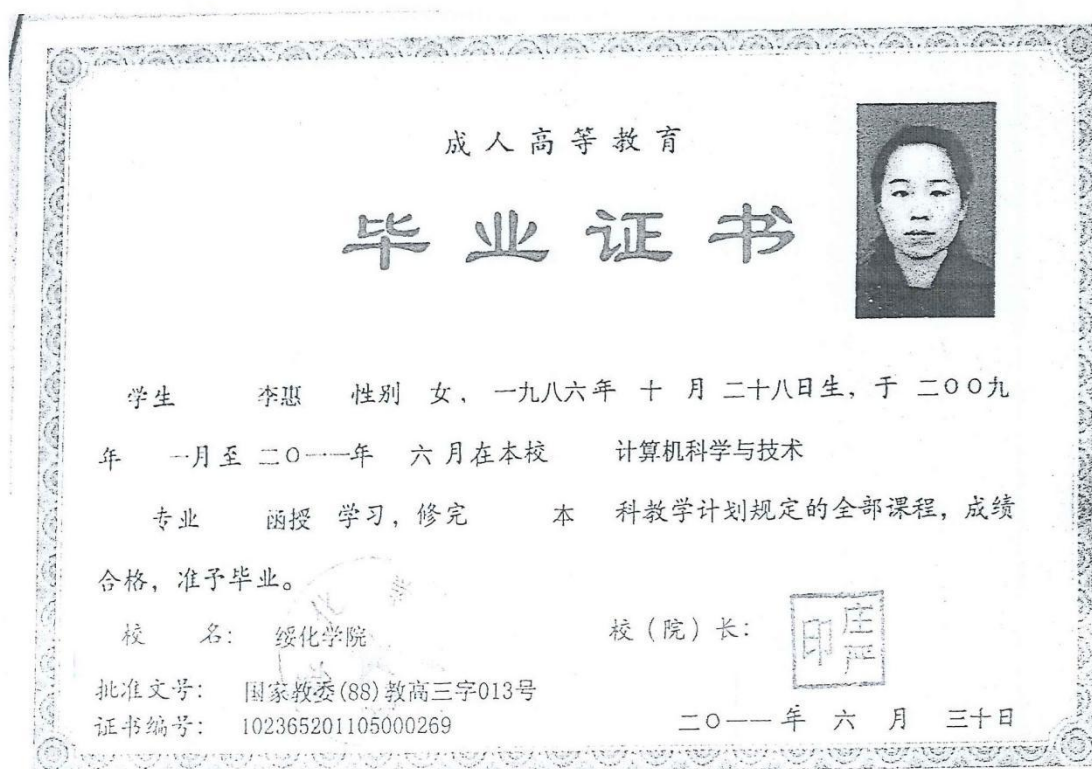 成人高等教育
毕业证书
学生 李惠 性别 女, 一九八六年 十 月 二十八日生, 于 二〇〇九
年 一月至 二〇一一年 六 月在本校 计算机科学与技术
专业 函授 学习, 修完 本 科教学计划规定的全部课程, 成绩
合格, 准予毕业。
校 名: 绥化学院
校(院)长:
庄严印
批准文号: 国家教委(88)教高三字013号
证书编号: 102365201105000269
二〇一一 年 六 月 三十日